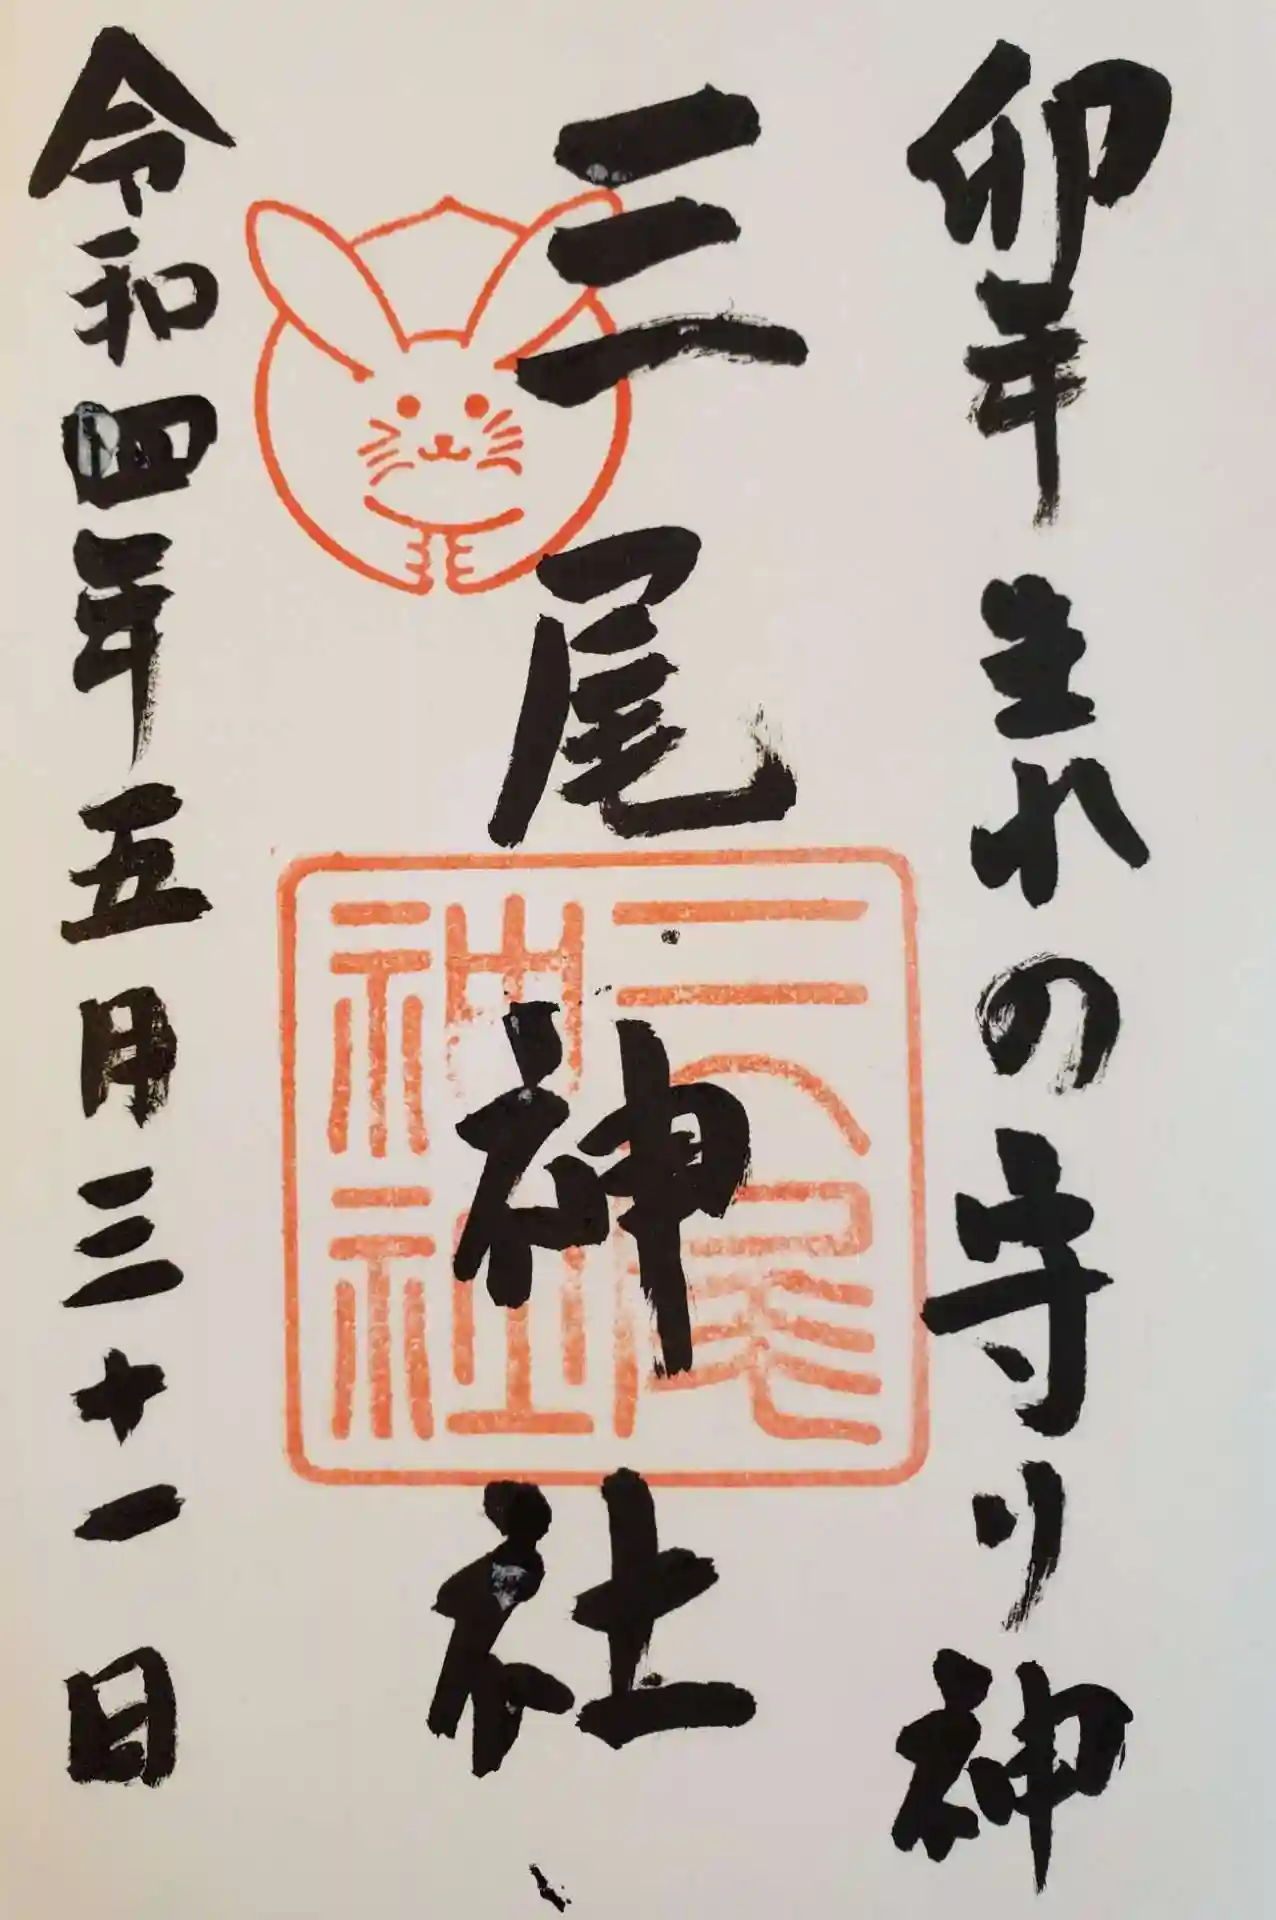 卯年生れの守り神
三尾神社
三尾
神社
令和四年五月三十一日